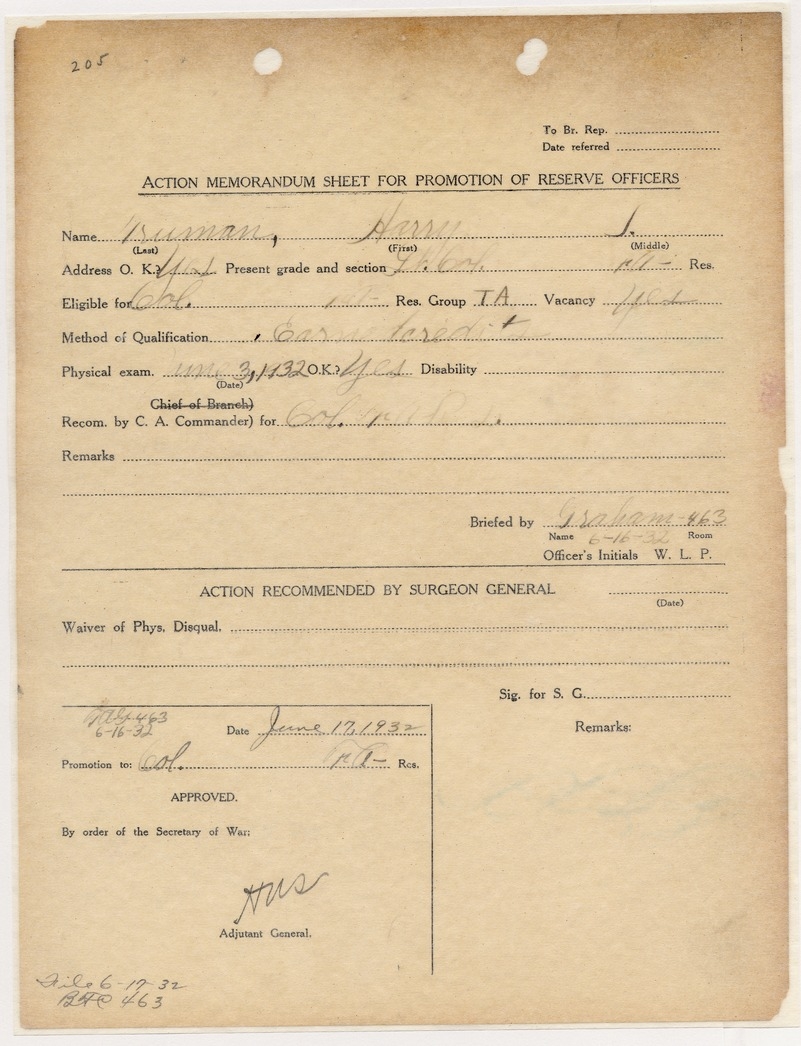 205
To Br. Rep.
Date referred
ACTION MEMORANDUM SHEET FOR PROMOTION OF RESERVE OFFICERS
Name Truman, Harry S.
(Last) (First) (Middle)
Address O. K.? Yes Present grade and section Lt. Col. FA- Res.
Eligible for Col. FA- Res. Group TA Vacancy Yes
Method of Qualification Earned credit
Physical exam. June 3, 1932 O.K.? Yes Disability
(Date)
Chief of Branch)
Recom. by C. A. Commander) for Col. FA Res.
Remarks
Briefed by Graham-463
Name 6-16-32 Room
Officer's Initials W. L. P.
ACTION RECOMMENDED BY SURGEON GENERAL
(Date)
Waiver of Phys. Disqual.
Sig. for S. G.
463
6-16-32
Date June 17, 1932
Remarks:
Promotion to: Col. FA- Res.
APPROVED.
By order of the Secretary of War:
Adjutant General.
File 6-17-32
463